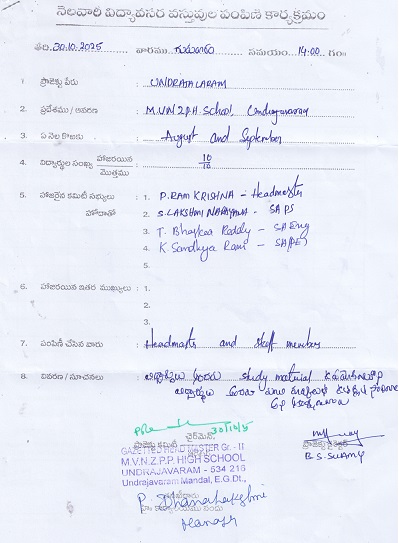 నెలవారీ విద్యావసర వస్తువుల పంపిణి కార్యక్రమం
తేది. 30.10.2025 వారము గురువారం సమయం 14:00 గం॥
1 ప్రాజెక్టు పేరు : UNDRAJALARAM
2. ప్రదేశము / ఆవరణ : M.V.N.Z.P.H. School, Undrajavaram
3. ఏ నెల కొరకు : August and September
4. విద్యార్థుల సంఖ్య హాజరయిన 10
మొత్తము 10
5. హాజరైన కమిటీ సభ్యులు : 1. P. RAM KRISHNA - Headmaster
హోదాతో 2. S. LAKSHMI NARAYANA - SA PS
3. T. Bhaskar Reddy - SA Eng
4. K. Sandhya Rani - SA(PET)
6. హాజరయిన ఇతర ముఖ్యులు : 1.
2.
3.
7. పంపిణీ చేసిన వారు : Headmaster and staff members
8. వివరణ / సూచనలు : study material
30/10/25
ప్రాజెక్టు కమిటీ ఛైర్మెన్ ప్రాజెక్టు
GAZETTED HEAD MASTER Gr. - II B.S. SWAMY
M.V.N.Z.P.P. HIGH SCHOOL
UNDRAJAVARAM - 534 216
Undrajavaram Mandal, E.G.Dt.,
P. Dhanalakshmi
Manager